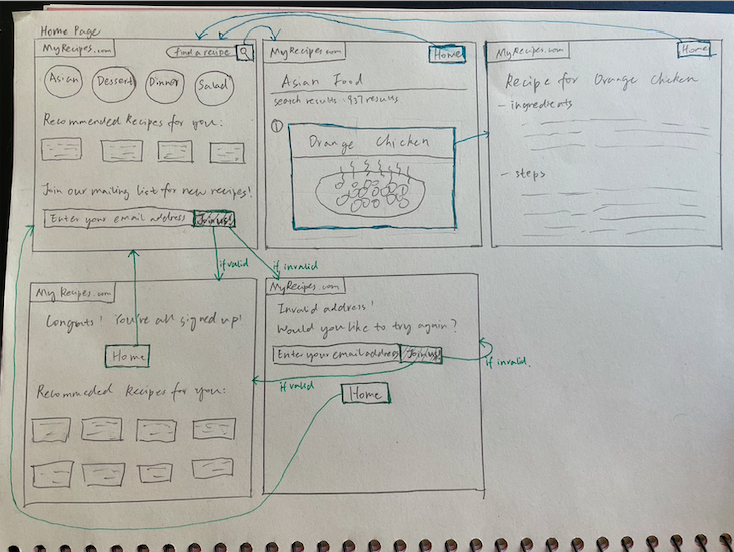 Home Page
MyRecipes.com
find a recipe
Asian
Dessert
Dinner
Salad
Recommended Recipes for you:
Join our mailing list for new recipes!
Enter your email address
Join us!
if valid
if invalid
MyRecipes.com
Home
Asian Food
search results : 937 results
①
Orange Chicken
MyRecipes.com
Home
Recipe for Orange Chicken
- ingredients
- steps
My Recipes.com
Congrats! You're all signed up!
Home
Recommeded Recipes for you:
MyRecipes.com
Invalid address!
Would you like to try again?
Enter your email address
Join us!
if invalid.
if valid
Home